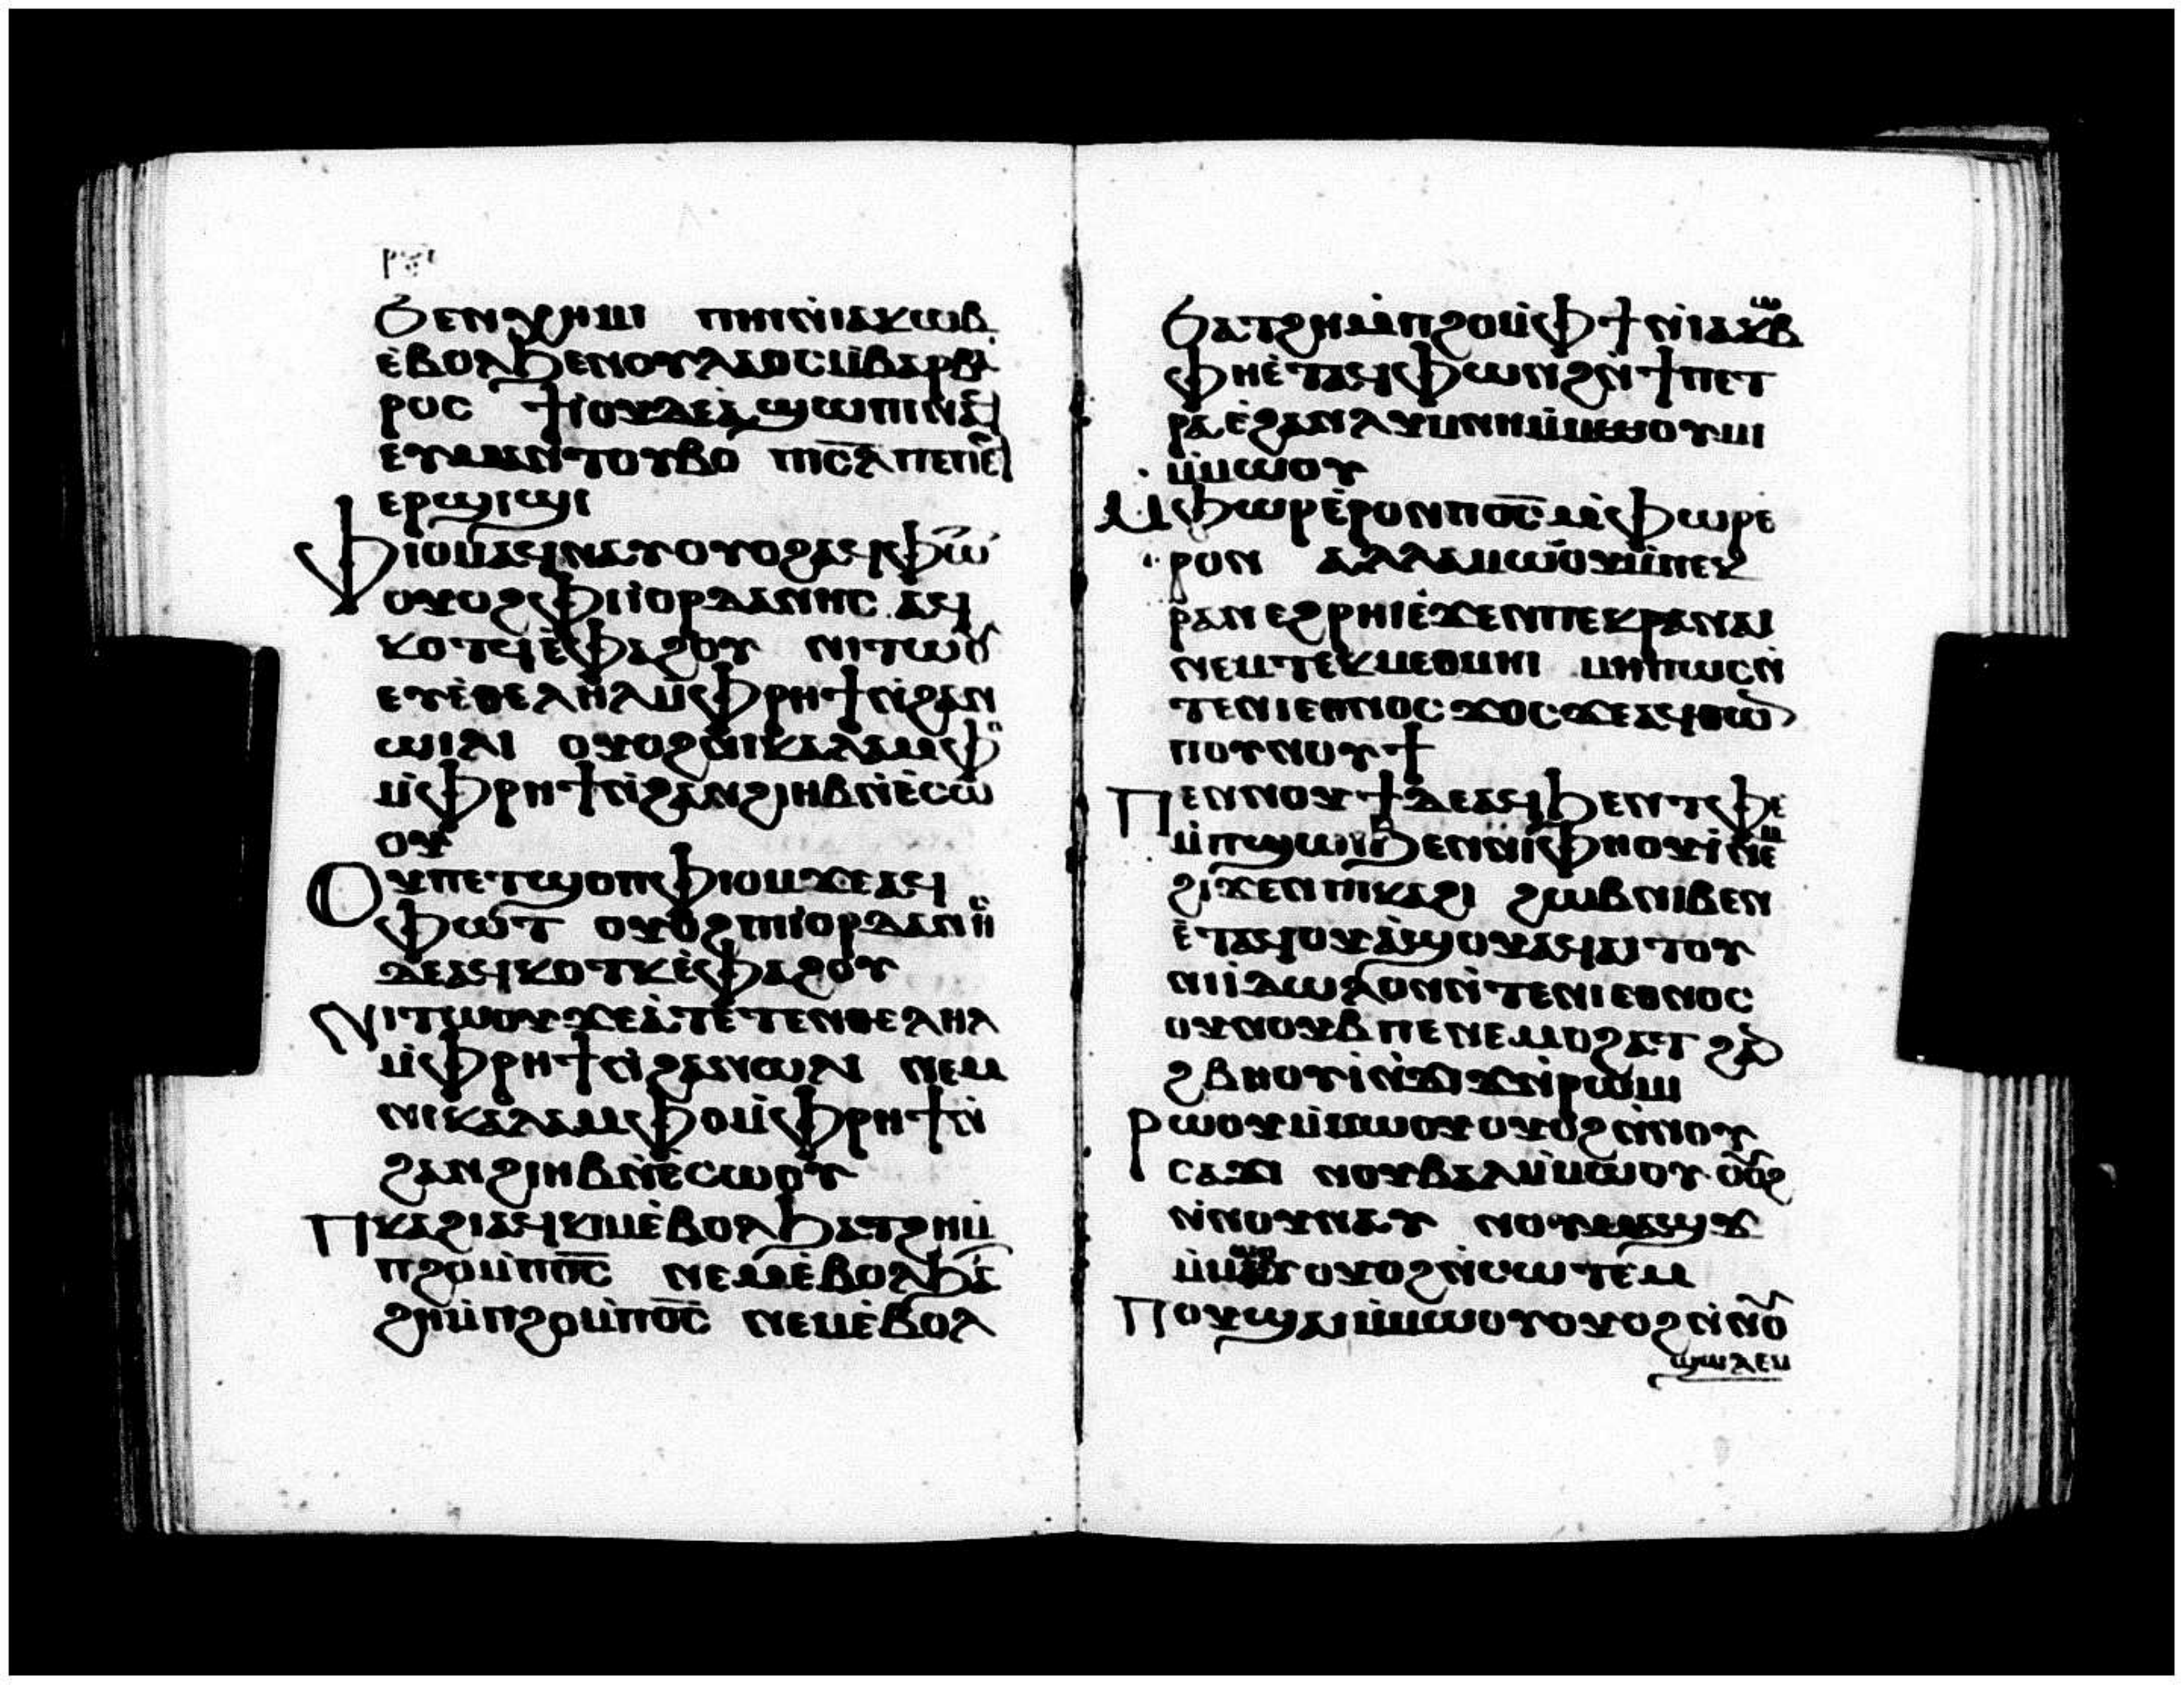 Ϧⲉⲛⲭⲏⲙⲓ ⲡⲏⲓⲛ̀ⲓⲁⲕⲱⲃ
ⲉ̀ⲃⲟⲗϧⲉⲛⲟⲩⲗⲁⲟⲥⲙ̀ⲃⲁⲣⲃⲁ
ⲣⲟⲥ ϯⲓⲟⲩⲇⲉⲁ̀ ϣⲱⲡⲓⲛⲁϥ
ⲉⲩⲙⲁⲛ̀ⲧⲟⲩⲃⲟ ⲡⲓⲥ̅ⲗ
ⲉⲣϣⲓϣⲓ
Ⲫⲓⲟⲙⲁϥⲛⲁⲩⲟⲩⲟϩⲁϥⲫⲱ
ⲟⲩⲟϩⲫⲓⲓⲟⲣⲇⲁⲛⲏⲥ ⲁϥ
ⲕⲟⲧϥⲉ̀ⲫⲁϩⲟⲩ ⲛⲓⲧⲱⲟⲩ
ⲉⲩⲉ̀ⲑⲉⲗⲏⲗⲙ̀ⲫⲣⲏϯⲛ̀ϩⲁⲛ
ⲱⲓⲗⲓ ⲟⲩⲟϩⲛⲓⲕⲁⲗⲁⲙⲫⲟ
ⲙ̀ⲫⲣⲏϯⲛ̀ϩⲁⲛϩⲓⲏⲃⲛ̀ⲉ̀ⲥⲱ
ⲟⲩ
Ⲟⲩⲡⲉⲧϣⲟⲡⲫⲓⲟⲙϫⲉⲁϥ
ⲫⲱⲧ ⲟⲩⲟϩⲡⲓⲓⲟⲣⲇⲁⲛⲏⲥ
ⲇⲉⲁϥⲕⲟⲧⲕⲉ̀ⲫⲁϩⲟⲩ
Ⲛⲓⲧⲱⲟⲩϫⲉⲁ̀ⲧⲉⲧⲉⲛⲑⲉⲗⲏⲗ
ⲙ̀ⲫⲣⲏϯⲛ̀ϩⲁⲛⲱⲓⲗⲓ ⲛⲉⲙ
ⲛⲓⲕⲁⲗⲁⲙⲫⲟⲙ̀ⲫⲣⲏϯⲛ̀
ϩⲁⲛϩⲓⲏⲃⲛ̀ⲉ̀ⲥⲱⲟⲩ
Ⲡⲕⲁϩⲓⲁϥⲕⲓⲙⲉ̀ⲃⲟⲗϧⲁⲧϩⲏⲙ̀
ⲡϩⲟⲙ̀ⲡⲟ̅ⲥ̅ ⲛⲉⲙⲉ̀ⲃⲟⲗϧⲁⲧ
ϩⲏⲙ̀ⲡϩⲟⲙ̀ⲡⲟ̅ⲥ̅ ⲛⲉⲙⲉ̀ⲃⲟⲗ
Ϧⲁⲧϩⲏⲙ̀ⲡϩⲟⲙ̀ⲫϯⲛ̀ⲓⲁⲕⲱⲃ
Ⲫⲏⲉ̀ⲧⲁϥⲫⲱⲛϩⲛ̀ϯⲡⲉⲧ
ⲣⲁⲉ̀ϩⲁⲛⲗⲩⲙⲛⲏⲙ̀ⲙⲟⲩⲙ
ⲙ̀ⲙⲱⲟⲩ
Ⲙ̀ⲫⲱⲣⲉ̀ⲣⲟⲛⲡⲟ̅ⲥ̅ⲙ̀ⲫⲱⲣⲉ
ⲣⲟⲛ ⲁⲗⲗⲁⲙⲱⲟⲩⲙ̀ⲡⲉⲕ
ⲣⲁⲛ ⲉϩⲣⲏⲓⲉ̀ϫⲉⲛⲡⲉⲕⲣⲁⲛⲁⲓ
ⲛⲉⲙⲧⲉⲕⲙⲉⲑⲙⲏⲓ ⲙⲏⲡⲱⲥⲛ̀
ⲧⲉⲛⲓⲉⲑⲛⲟⲥϫⲟⲥϫⲉⲁϥⲑⲱⲛ
ⲡⲟⲩⲛⲟⲩϯ
Ⲡⲉⲛⲛⲟⲩϯⲇⲉⲁϥϧⲉⲛⲧⲫⲉ
ⲙ̀ⲡϣⲱⲓϧⲉⲛⲛⲓⲫⲏⲟⲩⲓ̀ⲛⲉⲙ
ϩⲓϫⲉⲛⲡⲓⲕⲁϩⲓ ϩⲱⲃⲛⲓⲃⲉⲛ
ⲉ̀ⲧⲁϥⲟⲩⲁϣⲟⲩⲁϥⲁⲓⲧⲟⲩ
ⲛⲓⲓ̀ⲇⲱⲗⲟⲛⲛ̀ⲧⲉⲛⲓⲉⲑⲛⲟⲥ
ⲟⲩⲛⲟⲩⲃⲡⲉⲛⲉⲙⲟϩⲁⲧ ϩⲁⲛ
ϩⲃⲏⲟⲩⲓ̀ⲛ̀ϫⲓϫⲛ̀ⲣⲱⲙⲓ
Ⲣⲱⲟⲩⲙ̀ⲙⲱⲟⲩⲟⲩⲟϩⲛ̀ⲛⲟⲩ
ⲥⲁϫⲓ ⲛⲟⲩⲃⲁⲗⲙ̀ⲙⲱⲟⲩ ⲟⲩⲟϩ
ⲛ̀ⲛⲟⲩⲛⲁⲩ ⲛⲟⲩⲙⲁϣϫ
ⲙ̀ⲙⲱⲟⲩⲟⲩⲟϩⲛ̀ⲥⲱⲧⲉⲙ
Ⲡⲟⲩϣⲁⲓⲙ̀ⲙⲱⲟⲩⲟⲩⲟϩⲛ̀ⲛⲟⲩ
ϣⲱⲗⲉⲙ